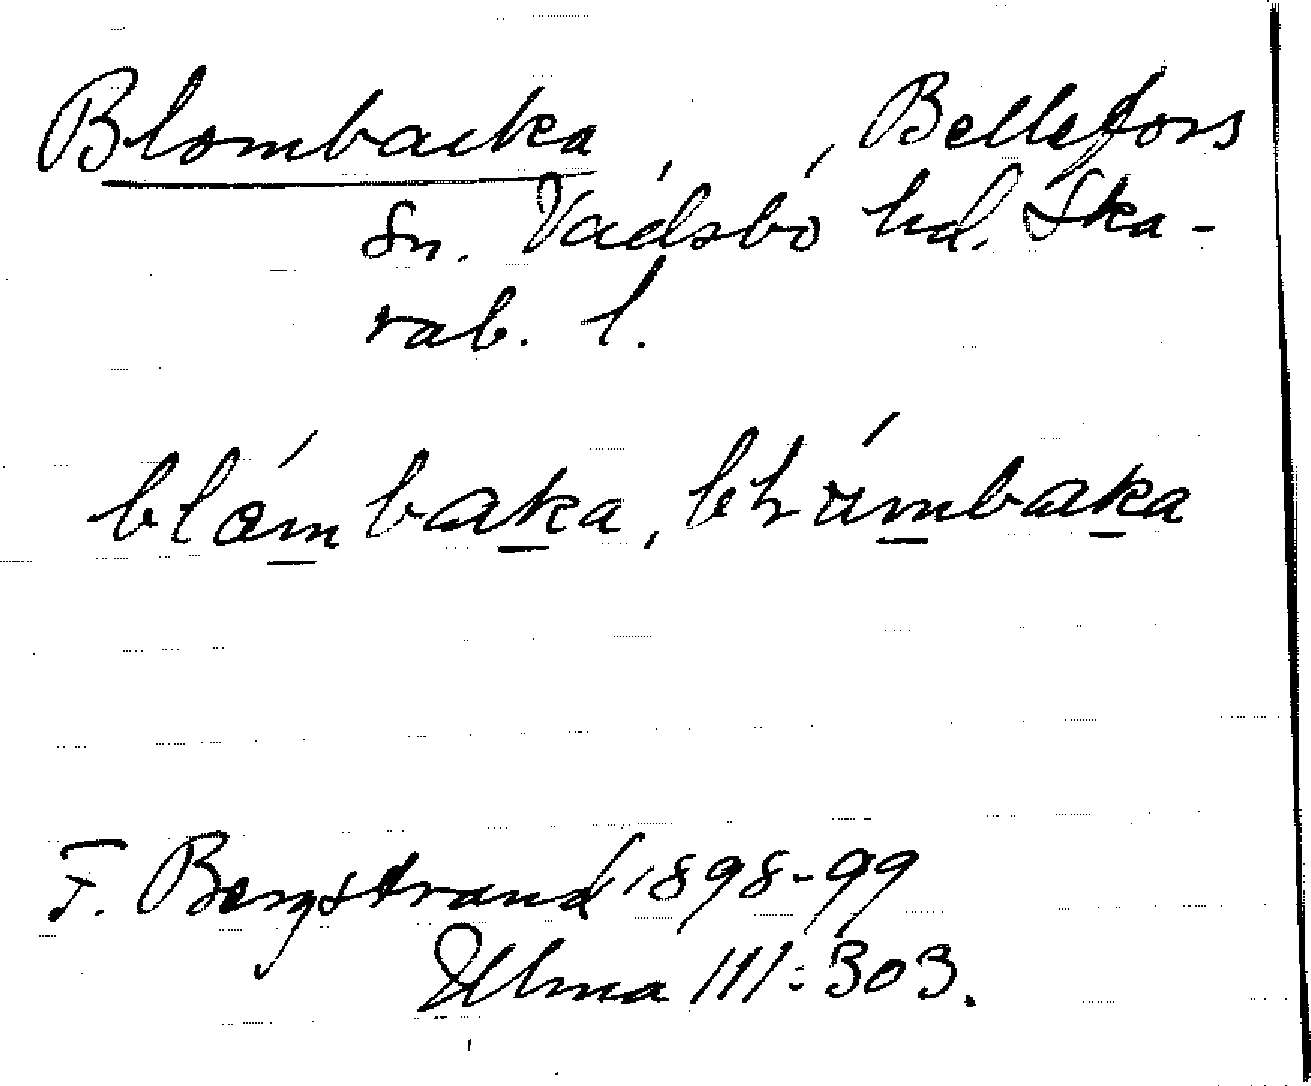 Blombacka , , Bellefors
sn. Vadsbo hd. Ska-
rab. l.
blómbaka,
F. Bergstrand 1898-99
Ulma 111:303.